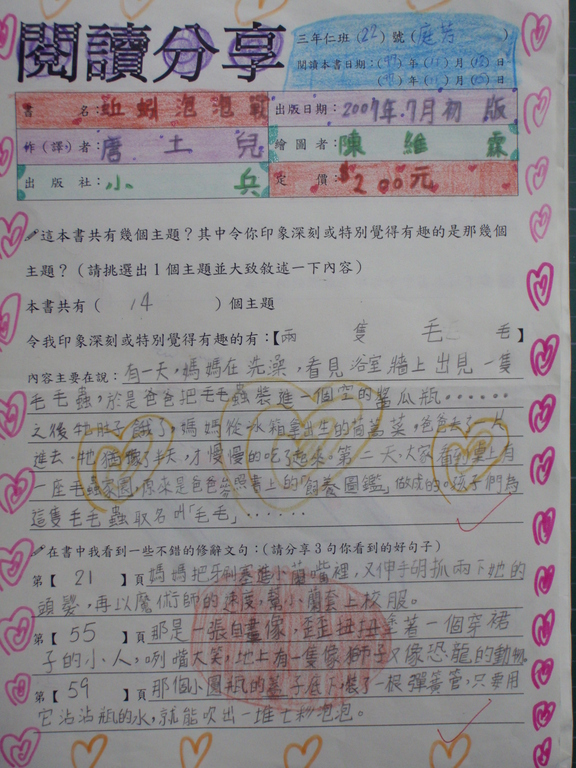 閱讀分享
三年仁班(22)號(庭芳)
閱讀本書日期：(97)年(11)月(12)日
(98)年(11)月(12)日
書名：蚯蚓泡泡戰 出版日期：2007年7月初版
作(譯)者：唐土兒 繪圖者：陳維霖
出版社：小兵 定價：$200元
這本書共有幾個主題？其中令你印象深刻或特別覺得有趣的是那幾個
主題？(請挑選出1個主題並大致敘述一下內容)
本書共有(14)個主題
令我印象深刻或特別覺得有趣的有：【兩隻毛毛】
內容主要在說：有一天，媽媽在洗澡，看見浴室牆上出見一隻
毛毛蟲，於是爸爸把毛毛蟲裝進一個空的醬瓜瓶……
之後牠肚子餓了，媽媽從冰箱拿出生的茼蒿菜，爸爸丟了一片
進去，牠猶豫了半天，才慢慢的吃了起來。第二天，大家看到桌上有
一座毛蟲家園，原來是爸爸參照書上的「飼養圖鑑」做成的。孩子們為
這隻毛毛蟲取名叫「毛毛」……
在書中我看到一些不錯的修辭文句：(請分享3句你看到的好句子)
第【21】頁 媽媽把牙刷塞進小蘭嘴裡，又伸手胡抓兩下她的
頭髮，再以魔術師的速度，幫小蘭套上校服。
第【55】頁 那是一張自畫像，歪歪扭扭塗著一個穿裙
子的小人，咧嘴大笑，地上有一隻像獅子又像恐龍的動物。
第【59】頁 那個小圓瓶的蓋子底下裝了一根彈簧管，只要用
它沾沾瓶的水，就能吹出一堆七彩泡泡。